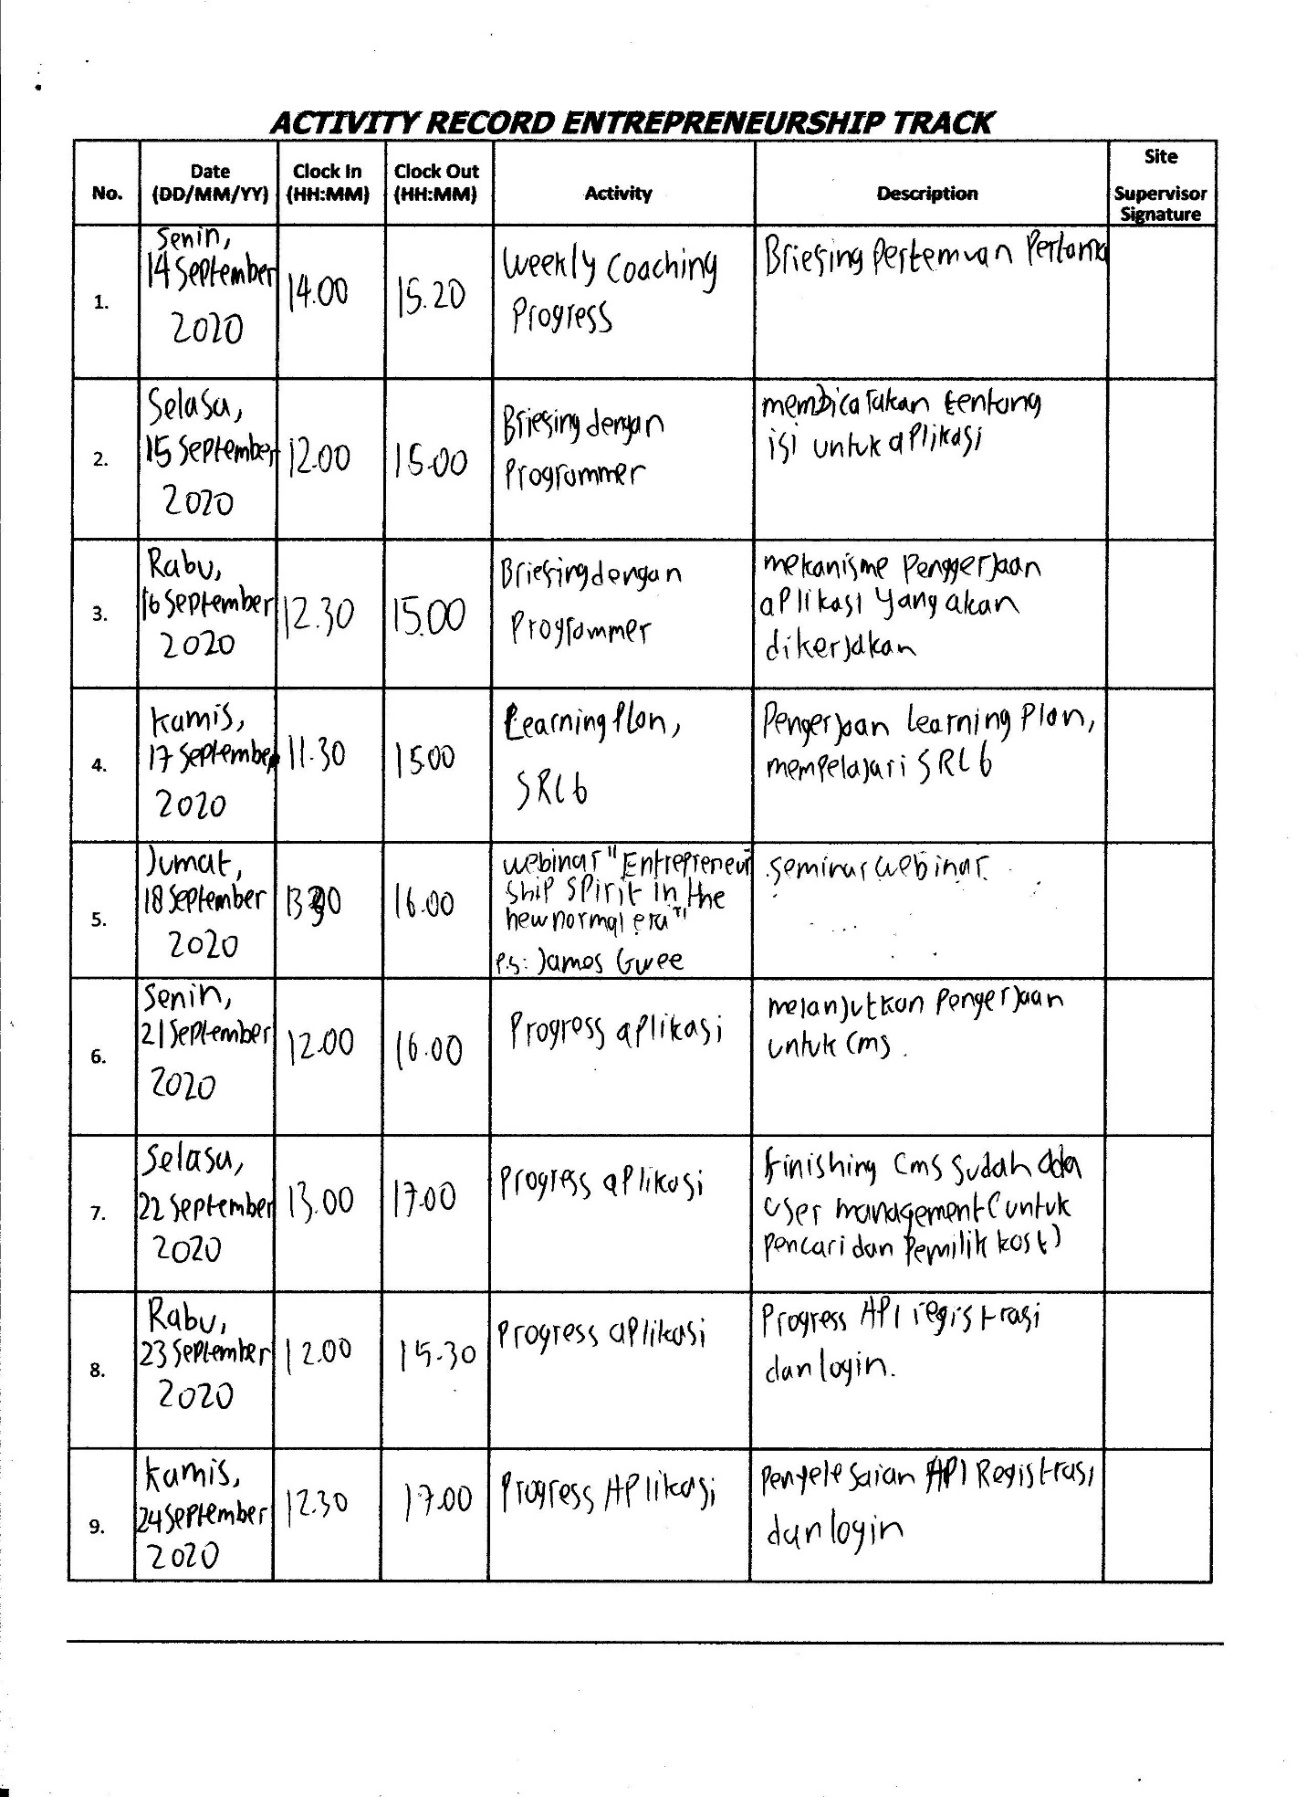 ACTIVITY RECORD ENTREPRENEURSHIP TRACK
No.
Date
(DD/MM/YY)
Clock In
(HH:MM)
Clock Out
(HH:MM)
Activity
Description
Site
Supervisor
Signature
1.
Senin,
14 September
2020
14.00
15.20
Weekly Coaching
Progress
Briefing Pertemuan Pertama
2.
Selasa,
15 September
2020
12.00
15.00
Briefing dengan
Programmer
membicarakan tentang
isi untuk aplikasi
3.
Rabu,
16 September
2020
12.30
15.00
Briefing dengan
Programmer
mekanisme Penggerjaan
aplikasi yang akan
dikerjakan
4.
Kamis,
17 September
2020
11.30
15.00
Learning Plan,
SRL6
Pengerjaan Learning Plan,
mempelajari SRL6
5.
Jumat,
18 September
2020
16.00
webinar "Entrepreneur
ship Spirit in the
new normal era"
P.S: James Gwee
seminar webinar.
6.
Senin,
21 September
2020
12.00
16.00
Progress aplikasi
melanjutkan Pengerjaan
untuk cms.
7.
Selasa,
22 September
2020
13.00
17.00
Progress aplikasi
Finishing cms sudah ada
user management (untuk
pencari dan pemilik kost)
8.
Rabu,
23 September
2020
12.00
15.30
Progress aplikasi
Progress API registrasi
dan login.
9.
Kamis,
24 September
2020
12.30
17.00
Progress Aplikasi
Penyelesaian API Registrasi
dan login